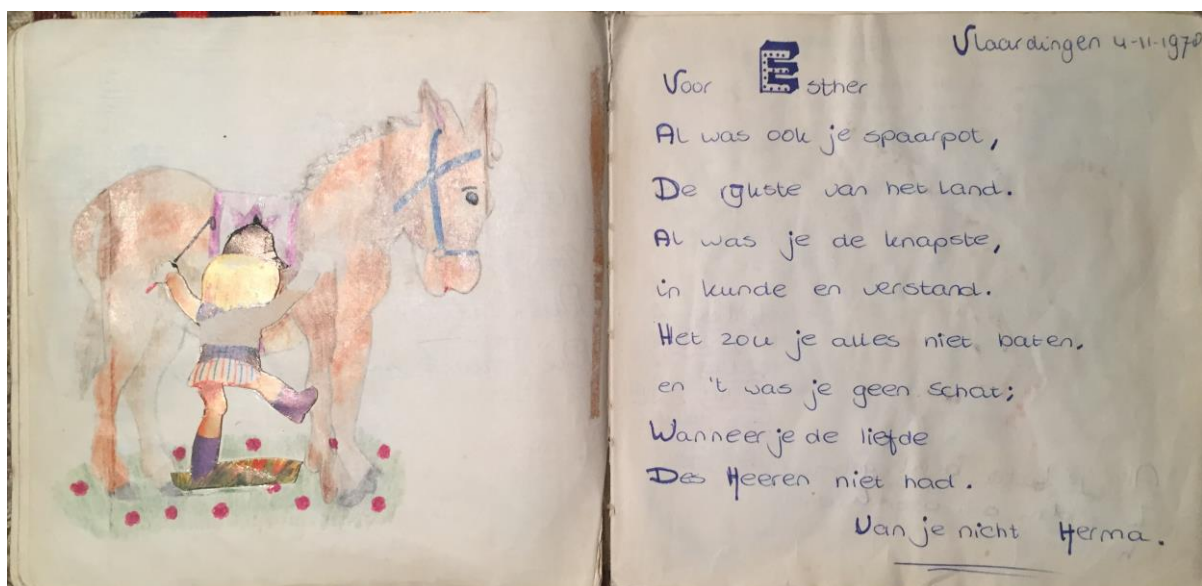 Vlaardingen 4-11-1978
Voor Esther
Al was ook je spaarpot,
De rijkste van het Land.
Al was je de knapste,
in kunde en verstand.
Het zou je alles niet baten,
en 't was je geen schat;
Wanneer je de liefde
Des Heeren niet had.
Van je nicht Herma.